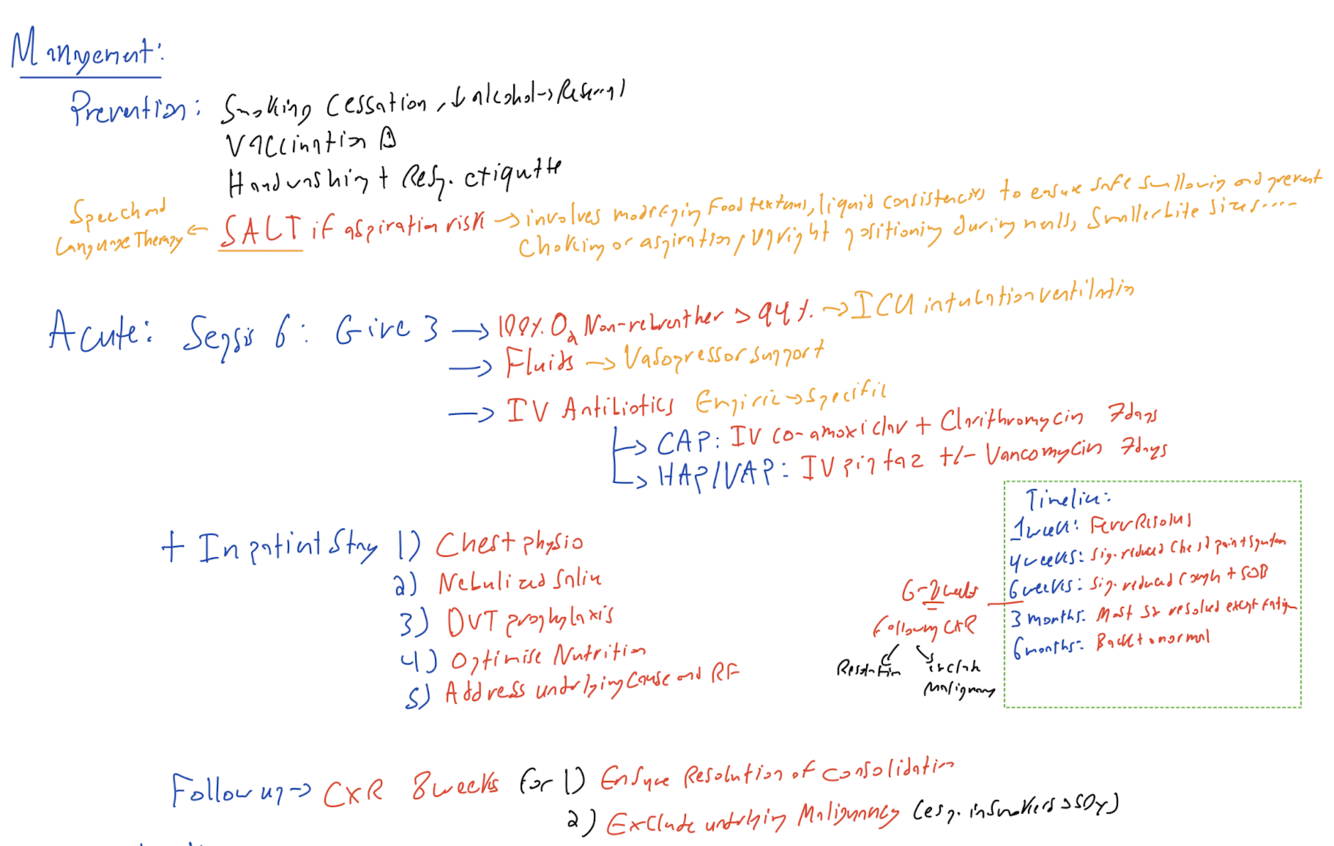 Management:
Prevention: Smoking Cessation, ↓ alcohol → Referral
Vaccination
Handwashing + Resp. etiquette
Speech and Language Therapy ← SALT if aspiration risk → involves modifying Food textures, liquid consistencies to ensure safe swallowing and prevent
choking or aspiration, upright positioning during meals, smaller bite sizes....
Acute: Sepsis 6: Give 3 → 100% O2 Non-rebreather > 94% → ICU intubation ventilation
→ Fluids → Vasopressor support
→ IV Antibiotics Empiric → Specific
↳ CAP: IV co-amoxiclav + Clarithromycin 7days
↳ HAP/VAP: IV piptaz +/- Vancomycin 7days
+ Inpatient Stay 1) Chest physio
2) Nebulized Saline
3) DVT prophylaxis
4) Optimise Nutrition
5) Address underlying Cause and RF
6-8 weeks
Following CXR
Resolution
Malignancy
Timeline:
1 week: Fever Resolves
4 weeks: sig. reduced Chest pain + Sputum
6 weeks: sig. reduced Cough + SOB
3 months: Most Sx resolved except Fatigue
6 months: Back to normal
Follow up → CXR 8 weeks for 1) Ensure Resolution of consolidation
2) Exclude underlying Malignancy (esp. in Smokers > 50y)